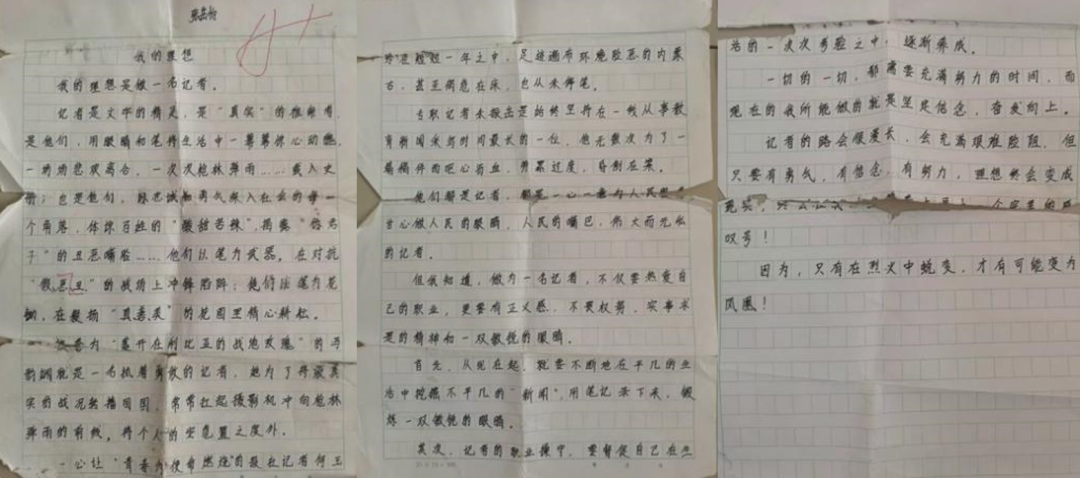 A+
我的理想
我的理想是做一名记者。
记者是文字的精灵，是“真实”的推崇者，
是他们，用眼睛和笔将生活中一幕幕惊心动魄，
一场场悲欢离合，一次次枪林弹雨……载入史
册；也是他们，将忠诚和勇气深入社会的每一
个角落，体味百姓的“酸甜苦辣”，揭露“伪君
子”的丑恶嘴脸……他们以笔为武器，在对抗
“假恶丑”的战场上冲锋陷阵；他们以笔为花
锄，在发扬“真善美”的花园里精心耕耘。
被誉为“盛开在利比亚的战地玫瑰”的冯
韵娴就是一名执着勇敢的记者，她为了将最真
实的战况转播回国，常常扛起摄影机冲向枪林
弹雨的前线，将个人的安危置之度外。
一心让“青春为使命燃烧”的殷红记者何
在短短一年之中，足迹遍布环境险恶的内蒙
古，甚至病危在床，也从未停笔。
专职记者
是始终坚持在一线从事教
育新闻采访时间最长的一位，他无数次为了一
篇稿件而呕心沥血，劳累过度，昏倒在案。
他们都是记者，都是一心一意为人民服
甘心做人民的眼睛，人民的嘴巴，伟大而无私
的记者。
但我知道，做为一名记者，不仅要热爱自
己的职业，更要有正义感，不畏权势，实事求
是的精神和一双敏锐的眼睛。
首先，从现在起，就要不断地在平凡的生
活中挖掘不平凡的“新闻”，用笔记录下来，锻
炼一双敏锐的眼睛。
其次，记者的职业操守，要督促自己在生
活的一次次考验之中，逐渐养成。
一切的一切，都需要充满努力的时间，而
现在的我所能做的就是坚定信念，奋发向上。
记者的路会很漫长，会充满艰难险阻，但
只要有勇气，有信念，有努力，理想终会变成
现实，
个完美的感
叹号！
因为，只有在烈火中蜕变，才有可能变为
凤凰！